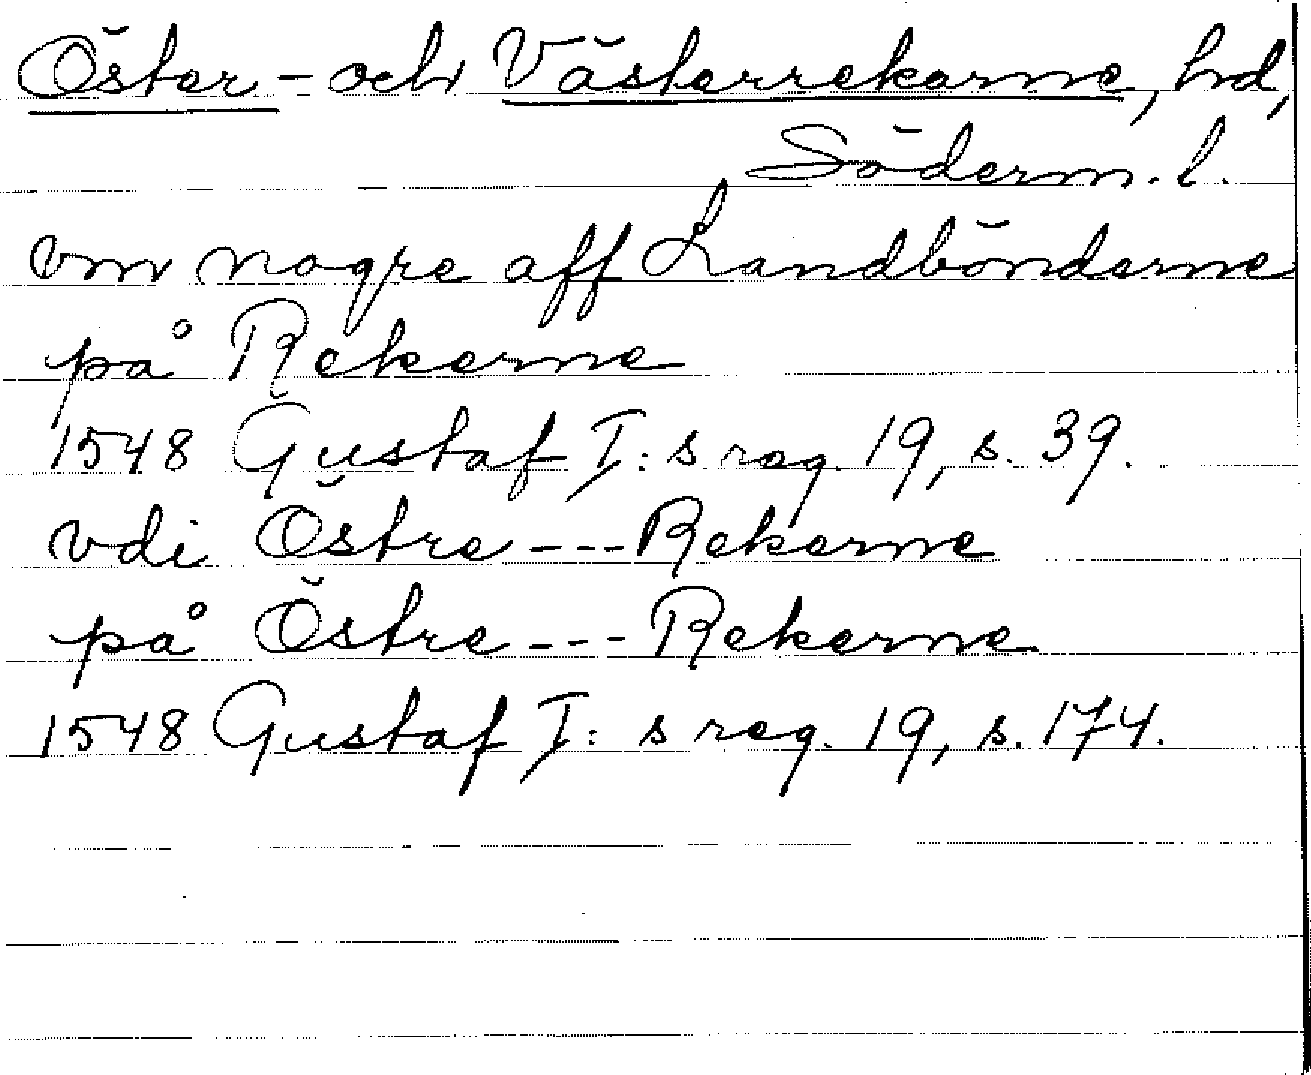 Öster- och Västerrekarne, hd,
Söderm. l.
om nogre aff Landbönderne
på Rekerne
1548 Gustaf I:s reg. 19, s. 39.
vdi Östre --- Rekerne
på Östre --- Rekerne
1548 Gustaf I:s reg. 19, s. 174.